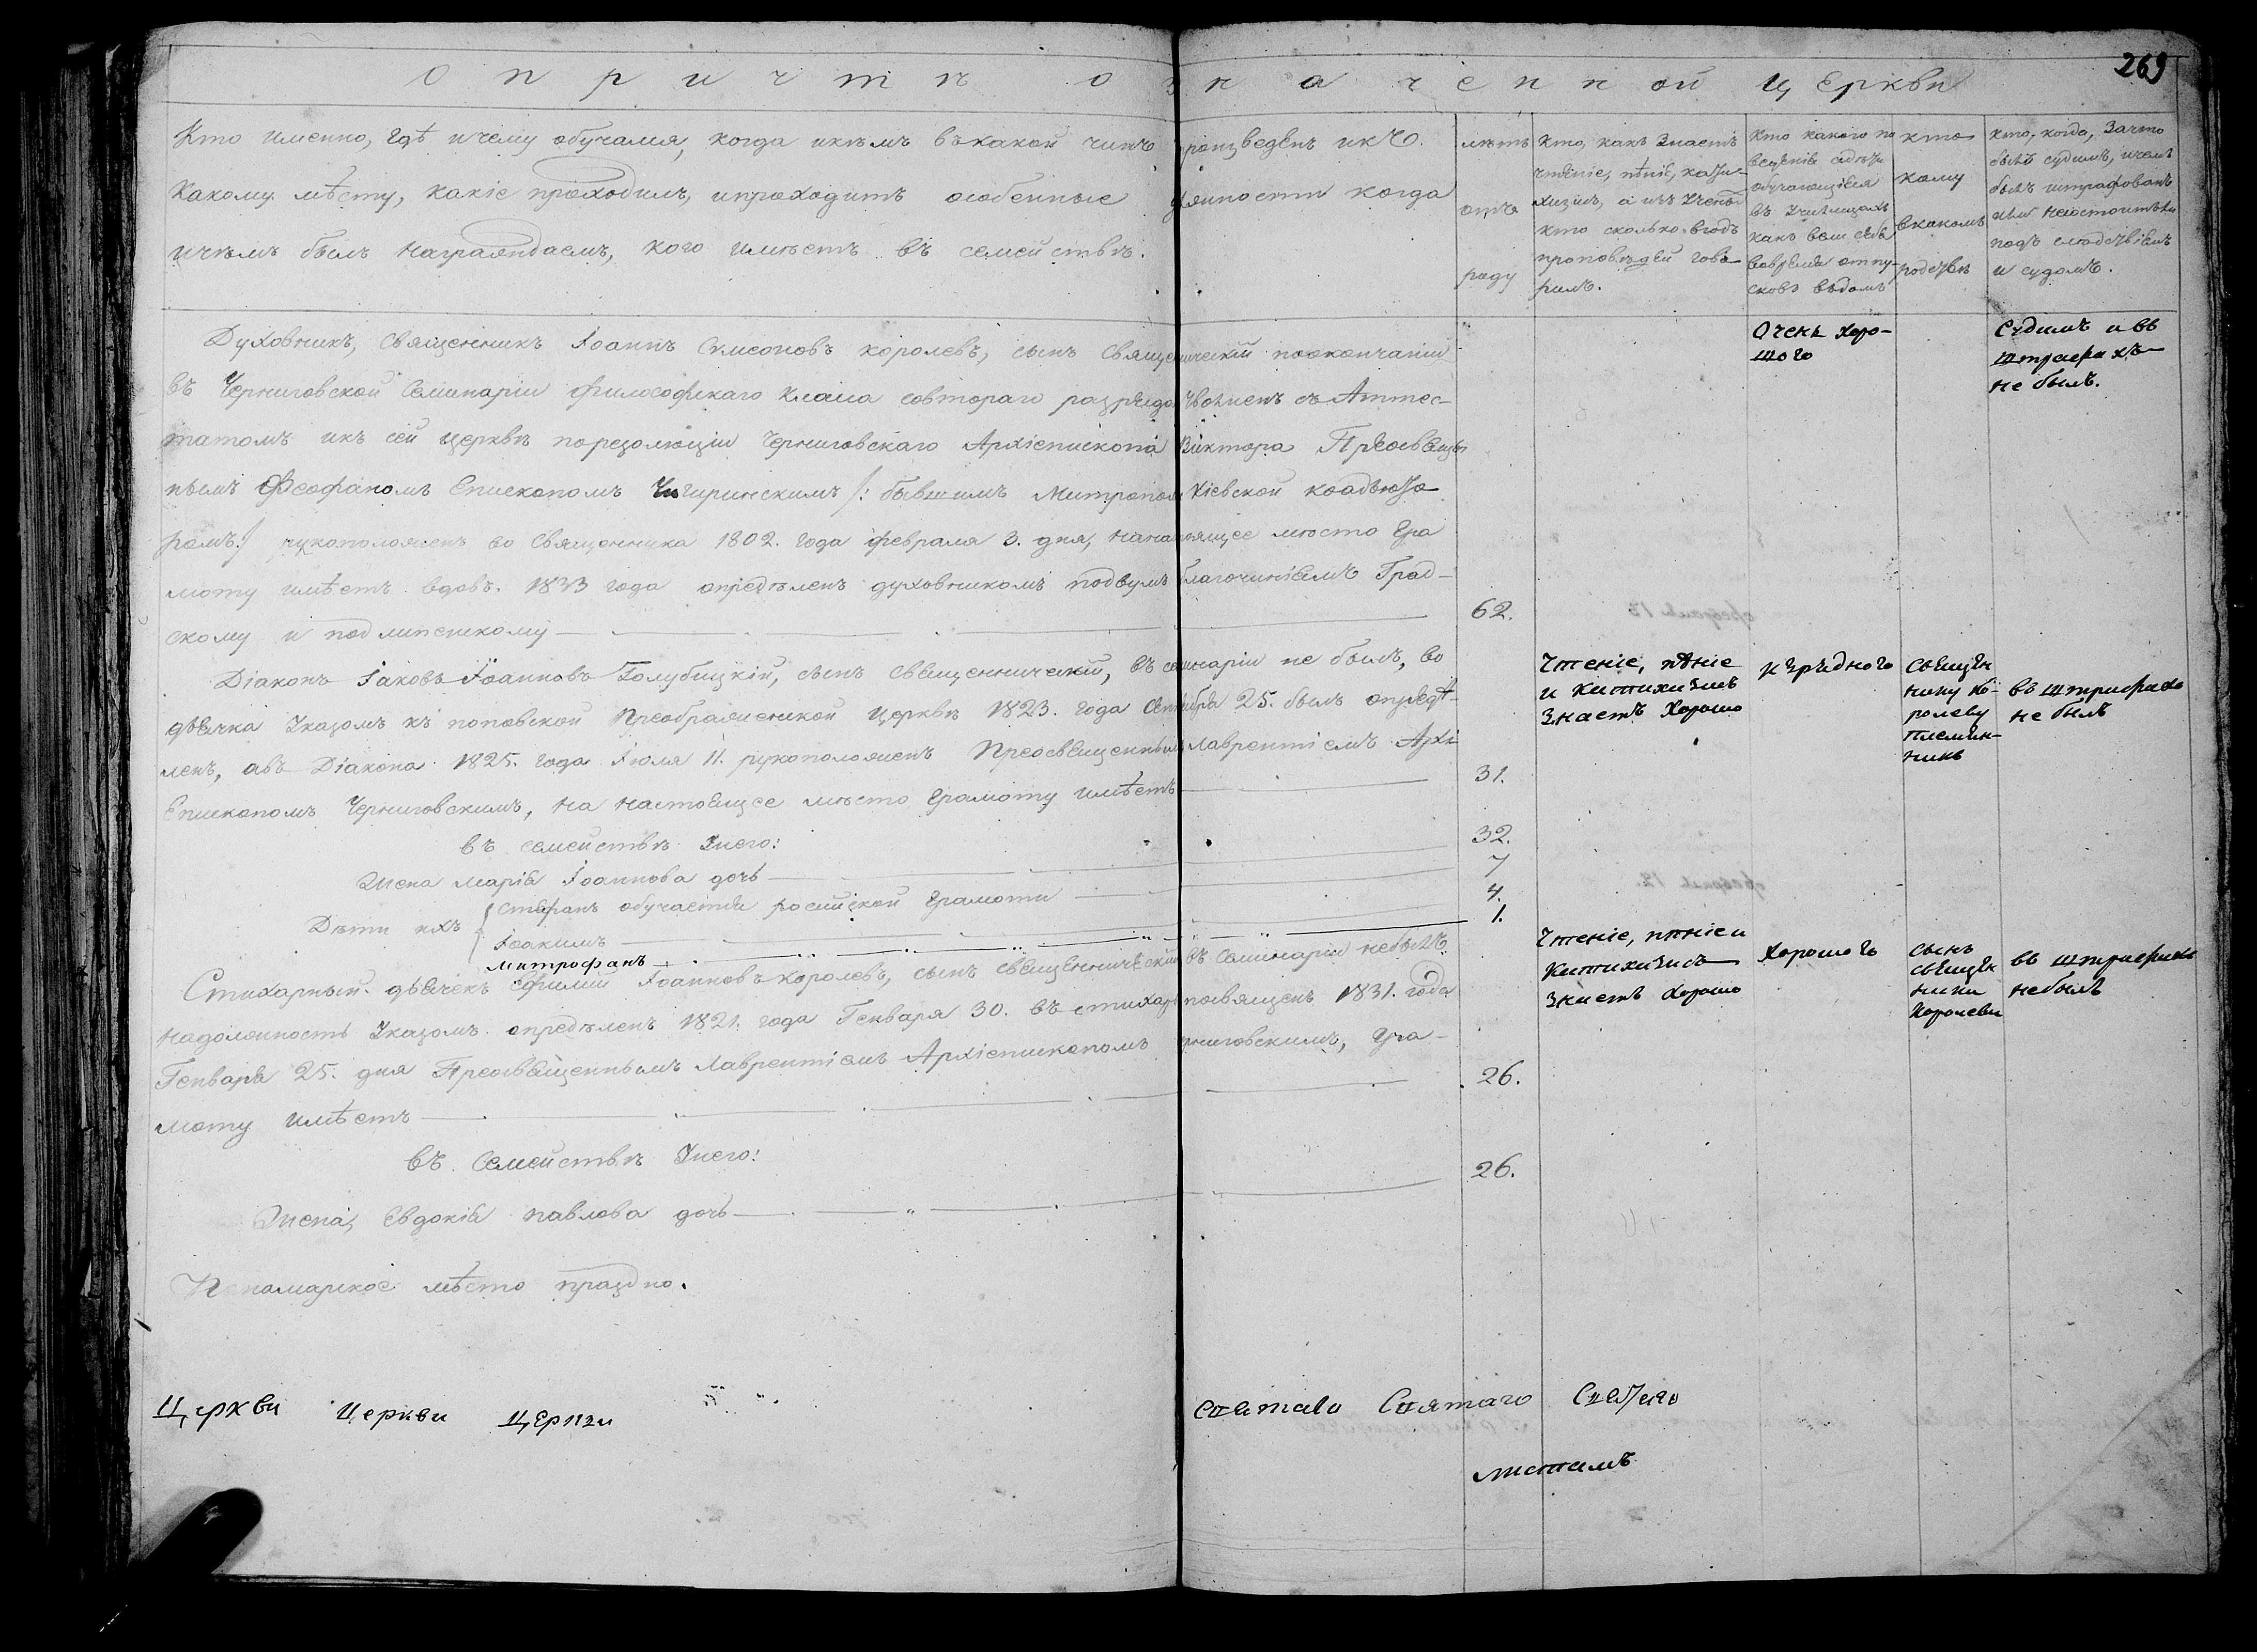 269
О причтѣ означенной Церкви
Кто именно, гдѣ и чему обучался, когда и кѣмъ въ какой чинъ произведенъ и къ
какому мѣсту, какіе проходилъ, и проходитъ особенные должности когда
и чѣмъ былъ награждаемъ, кого имѣетъ въ семействѣ.
лѣтъ
отъ
роду
Кто, какъ знаетъ
чтеніе, пѣніе, кати-
хизисъ, а изъ учены
кто сколько въ годъ
проповѣдей гово-
рилъ.
Кто какого по
веденія а дѣти
обучающіеся
въ училищахъ
какъ вели себя
во время отпу-
сковъ въ домъ
кто
кому
в какомъ
родствѣ
кто, когда, за что
былъ судимъ, и чемъ
былъ штрафованъ
или не состоитъ ли
подъ слѣдствіемъ
и судомъ.
Духовникъ, Священникъ Іоаннъ Симеоновъ Королевъ, сынъ Священническій по окончаніи
въ Черниговской Семинаріи Философскаго Класса со втораго разряда уволненъ съ Аттес-
татомъ и къ сей церквѣ по резолюціи Черниговскаго Архіепископа Виктора Преосвящен
нымъ Феофаномъ Епископомъ Чигиринскимъ /: бывшимъ Митропол Кіевской коадьюто
ромъ:/ рукоположенъ во Священника 1802. года февраля 3. дня, на настоящее мѣсто гра
моту имѣетъ вдовъ. 1833 года опредѣленъ духовникомъ по двумъ благочиніямъ Град-
скому и подлипенскому
62.
Очень хоро-
шого
Судимъ и въ
штрафахъ
не былъ.
Діаконъ Іаковъ Іоанновъ Голубицкій, сынъ священническій, въ семинаріи не былъ, во
дьячка Указомъ къ поповской Преображенской церквѣ 1823. года Сентября 25. былъ опредѣ-
ленъ, а въ Діакона 1825. года Іюля 11. рукоположенъ Преосвященнымъ Лаврентіемъ Архі
Епископомъ Черниговскимъ, на настоящее мѣсто грамоту имѣетъ
31.
Чтеніе, пѣніе
и катихизисъ
знаетъ хорошо
изрядного
священ
нику Ко-
ролеву
племян-
никъ
въ штрафахъ
не былъ
въ семействѣ у него:
Жена Марія Іоаннова дочь
32.
Дѣти ихъ
Стефанъ обучается росийской грамоти
7
Іоакимъ
4.
Митрофанъ
1.
Стихарный дьячекъ Ефимий Іоанновъ Королевъ, сынъ священническій въ Семинаріи не былъ.
на должность Указомъ опредѣленъ 1821. года Генваря 30. въ стихарь посвященъ 1831. года
Генваря 25. дня Преосвященнымъ Лаврентіемъ Архіепископомъ Черниговскимъ, гра-
моту имѣетъ
26.
Чтеніе, пѣніе и
катихизисъ
знаетъ хорошо
хорошогъ
сынъ
священ
ника
Королева
въ штрафахъ
не былъ
въ Семействѣ у него:
Жена, Евдокія Павлова дочь
26.
Пономарское мѣсто праздно.
Церкви Церкви Церкви
Святаго Святаго